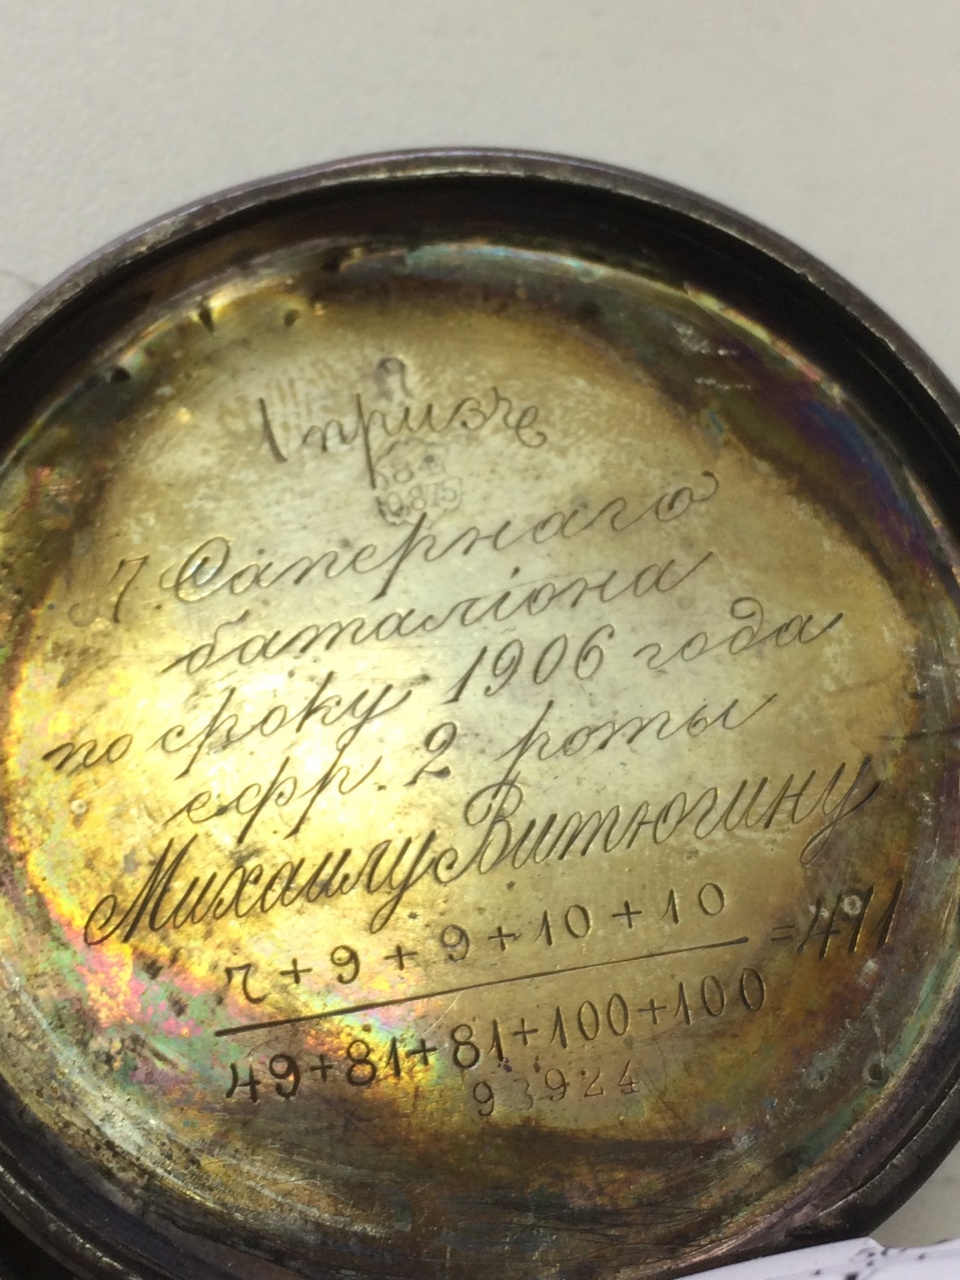 1 призъ
0,875
7 Сапернаго
баталіона
по сроку 1906 года
ефр. 2 роты
Михаилу Витюгину
7+9+9+10+10
=411
49+81+81+100+100
93924